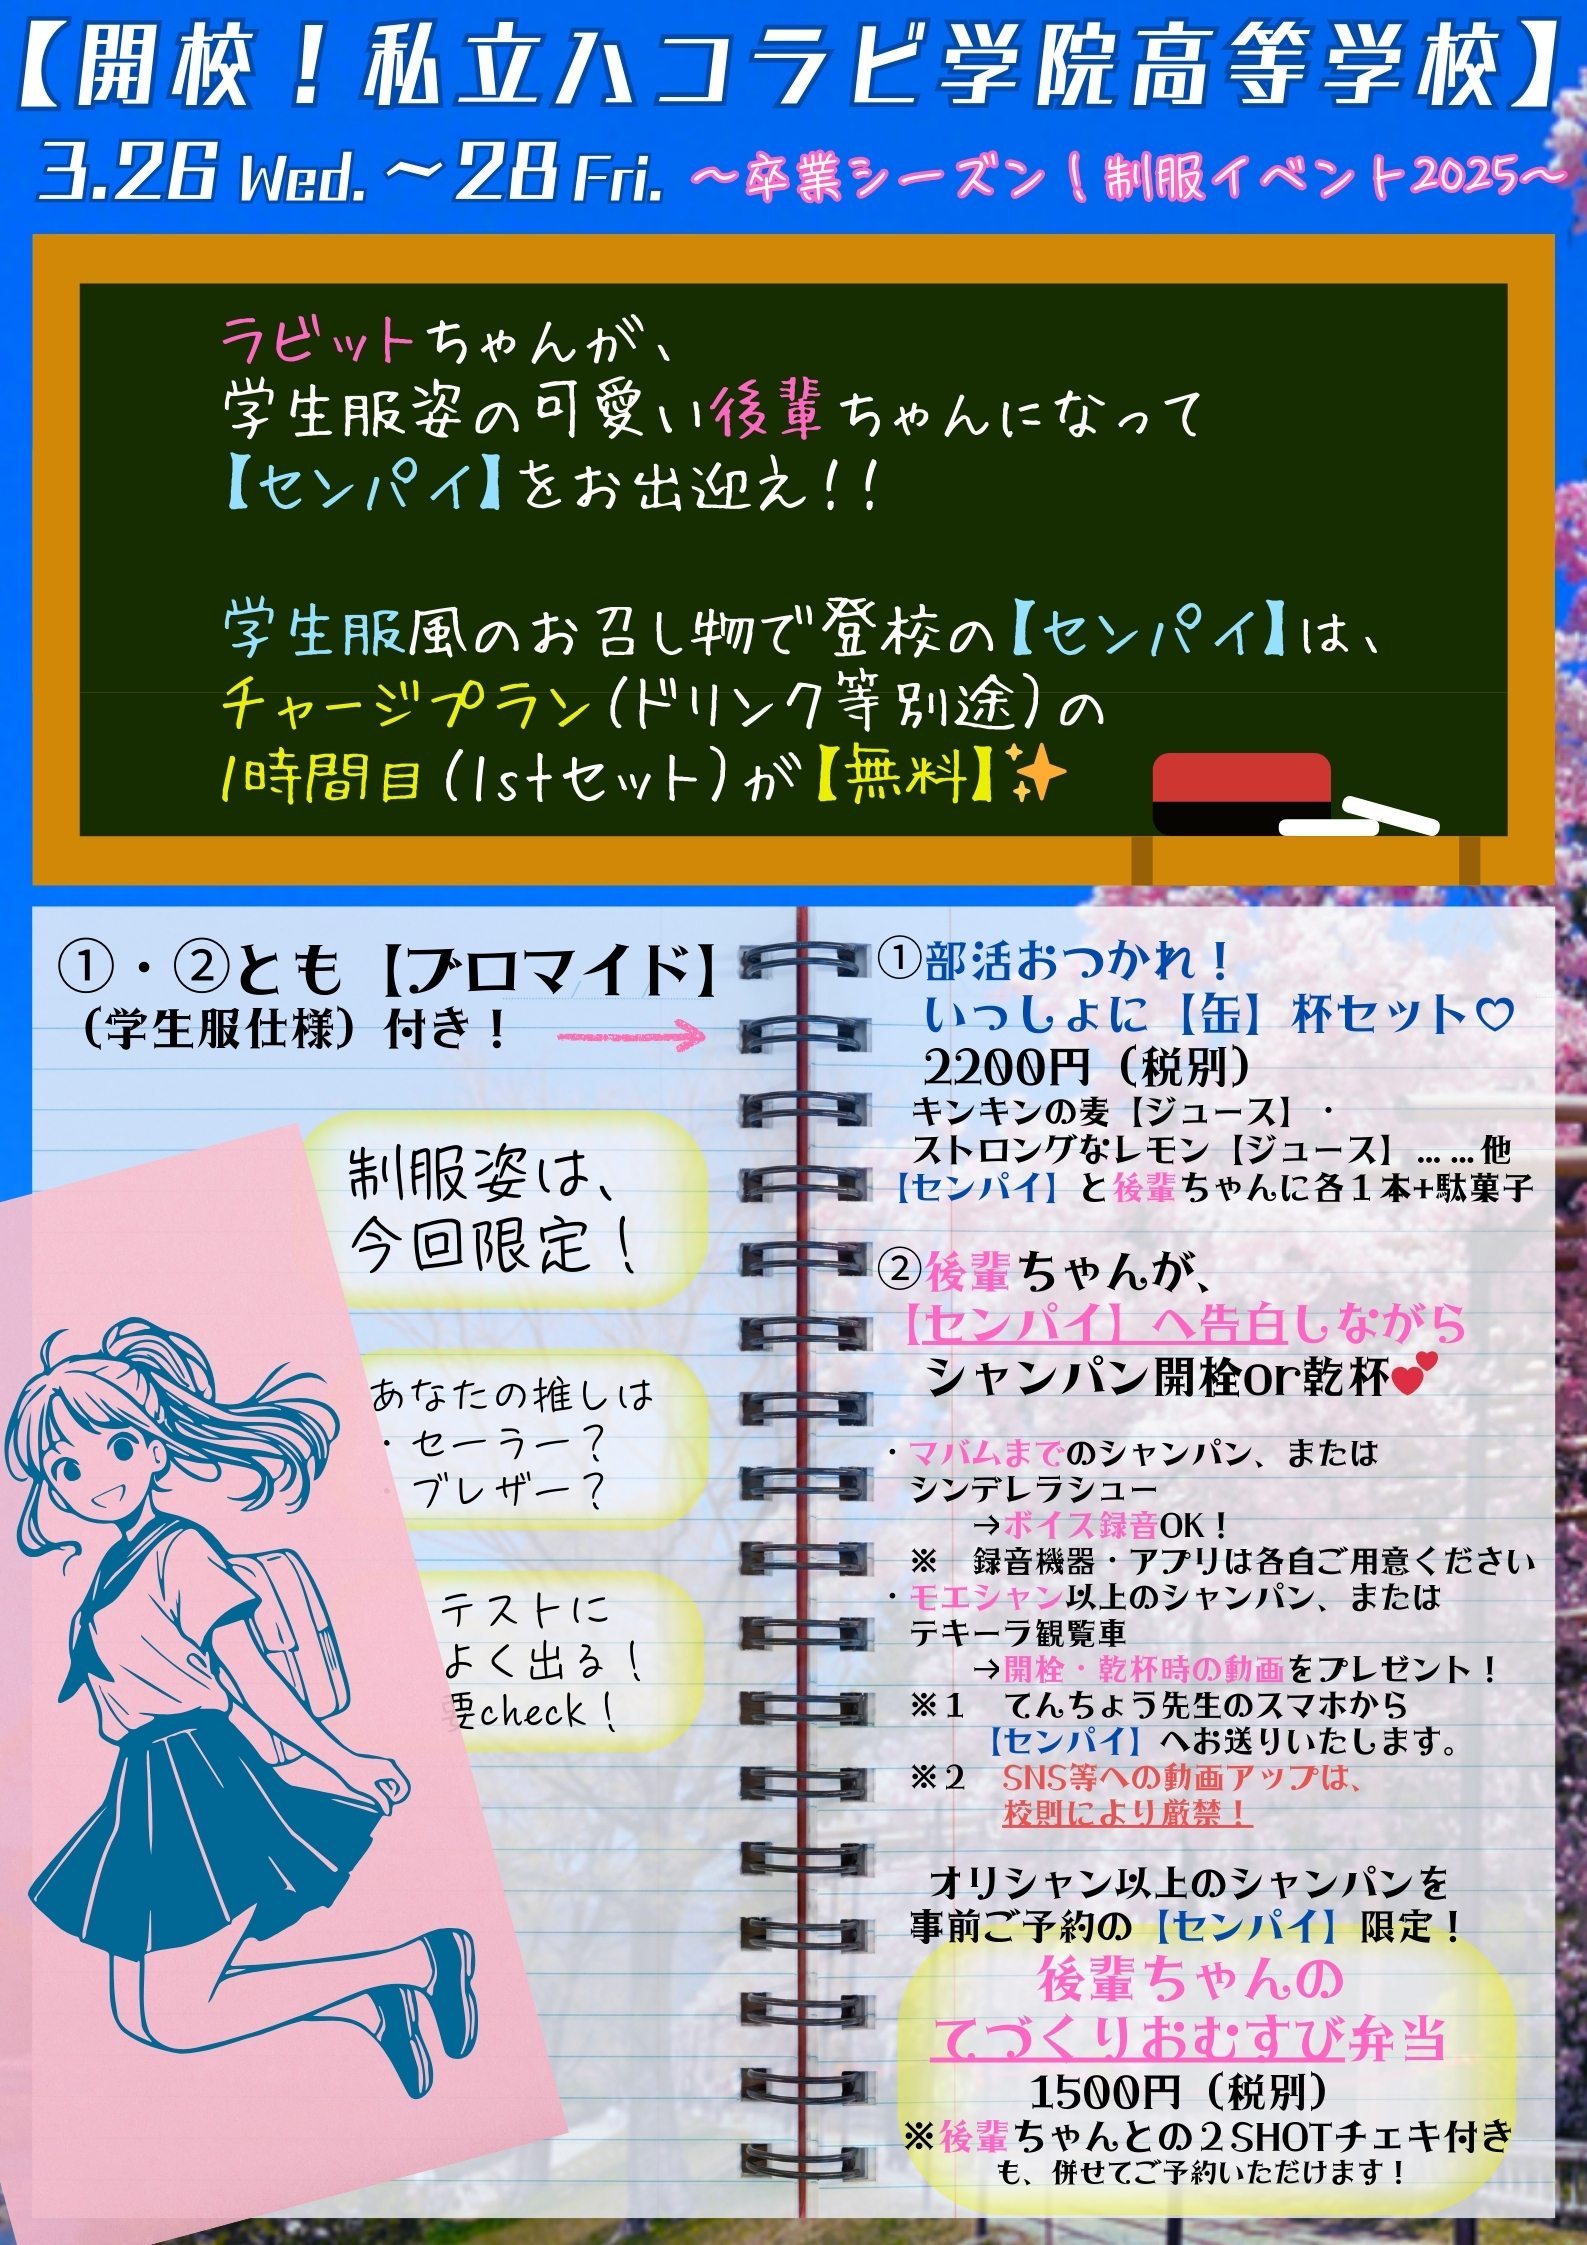 【開校！私立ハコラビ学院高等学校】
3.26 Wed. ～ 28 Fri. ～卒業シーズン！制服イベント2025～
ラビットちゃんが、
学生服姿の可愛い後輩ちゃんになって
【センパイ】をお出迎え！！
学生服風のお召し物で登校の【センパイ】は、
チャージプラン(ドリンク等別途)の
1時間目(1stセット)が【無料】✨
①・②とも【ブロマイド】
（学生服仕様）付き！
制服姿は、
今回限定！
あなたの推しは
・セーラー？
・ブレザー？
テストに
よく出る！
要check！
①部活おつかれ！
いっしょに【缶】杯セット♡
2200円（税別）
キンキンの麦【ジュース】・
ストロングなレモン【ジュース】……他
【センパイ】と後輩ちゃんに各１本+駄菓子
②後輩ちゃんが、
【センパイ】へ告白しながら
シャンパン開栓or乾杯💕
・マバムまでのシャンパン、または
シンデレラシュー
→ボイス録音OK！
※　録音機器・アプリは各自ご用意ください
・モエシャン以上のシャンパン、または
テキーラ観覧車
→開栓・乾杯時の動画をプレゼント！
※１　てんちょう先生のスマホから
【センパイ】へお送りいたします。
※２　SNS等への動画アップは、
校則により厳禁！
オリシャン以上のシャンパンを
事前ご予約の【センパイ】限定！
後輩ちゃんの
てづくりおむすび弁当
1500円（税別）
※後輩ちゃんとの２SHOTチェキ付き
も、併せてご予約いただけます！